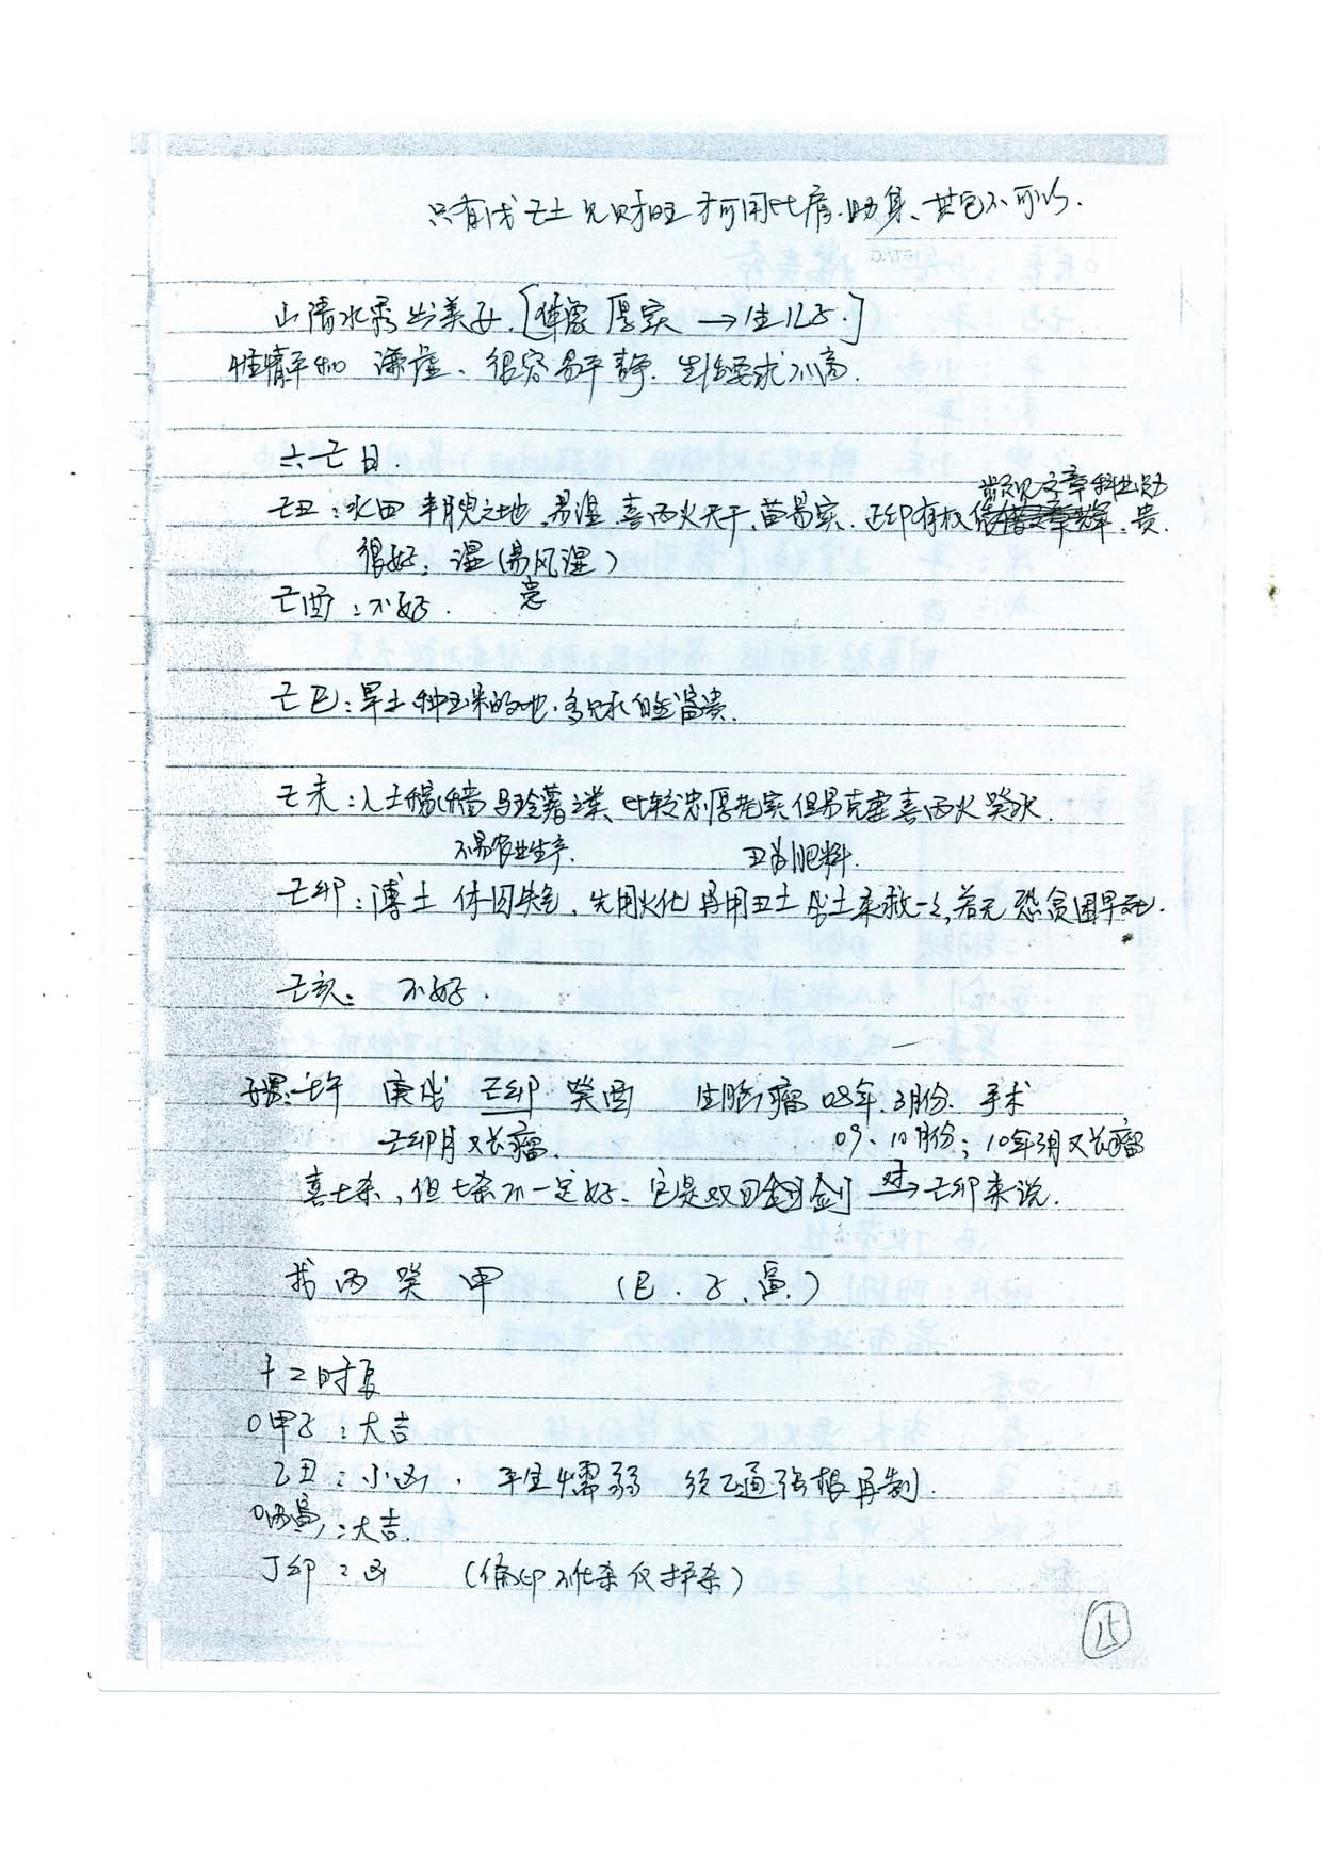 只有戊己土见财旺才可用比肩助身、其它不可以.
山清水秀出美子.[体质厚实→生儿子.]
性情平和 谦虚、很容易平静.生活要求不高.
六己日.
当见文章科出员
己丑:水田 半腴之地,易湿,喜丙火天干,苗易实.正印有权 贵.
很好,湿(易风湿)
己酉:不好. 患
己巳:旱土 种玉米的地.多见水自然富贵.
己未:入土稼穑 马玲薯之类、比较忠厚老实 但易克妻 喜丙火癸水.
不易农业生产. 丑为肥料.
己卯:薄土 休囚失气,先用火化 再用丑土 戌土来救之,若无 恐贫困早死.
己亥: 不好.
庚戌 己卯 癸酉 生脑瘤 08年.3月份. 手术
己卯月又长瘤. 09、10月份;10年3月又长瘤
喜七杀,但七杀不一定好、它是双回剑 对→己卯来说.
找丙癸甲 (巳、子、寅、)
十二时辰
O甲子:大吉
乙丑:小凶. 平生懦弱 须乙通强根再制.
O丙寅:大吉.
丁卯:凶 (偏印不化杀仅护杀)
15